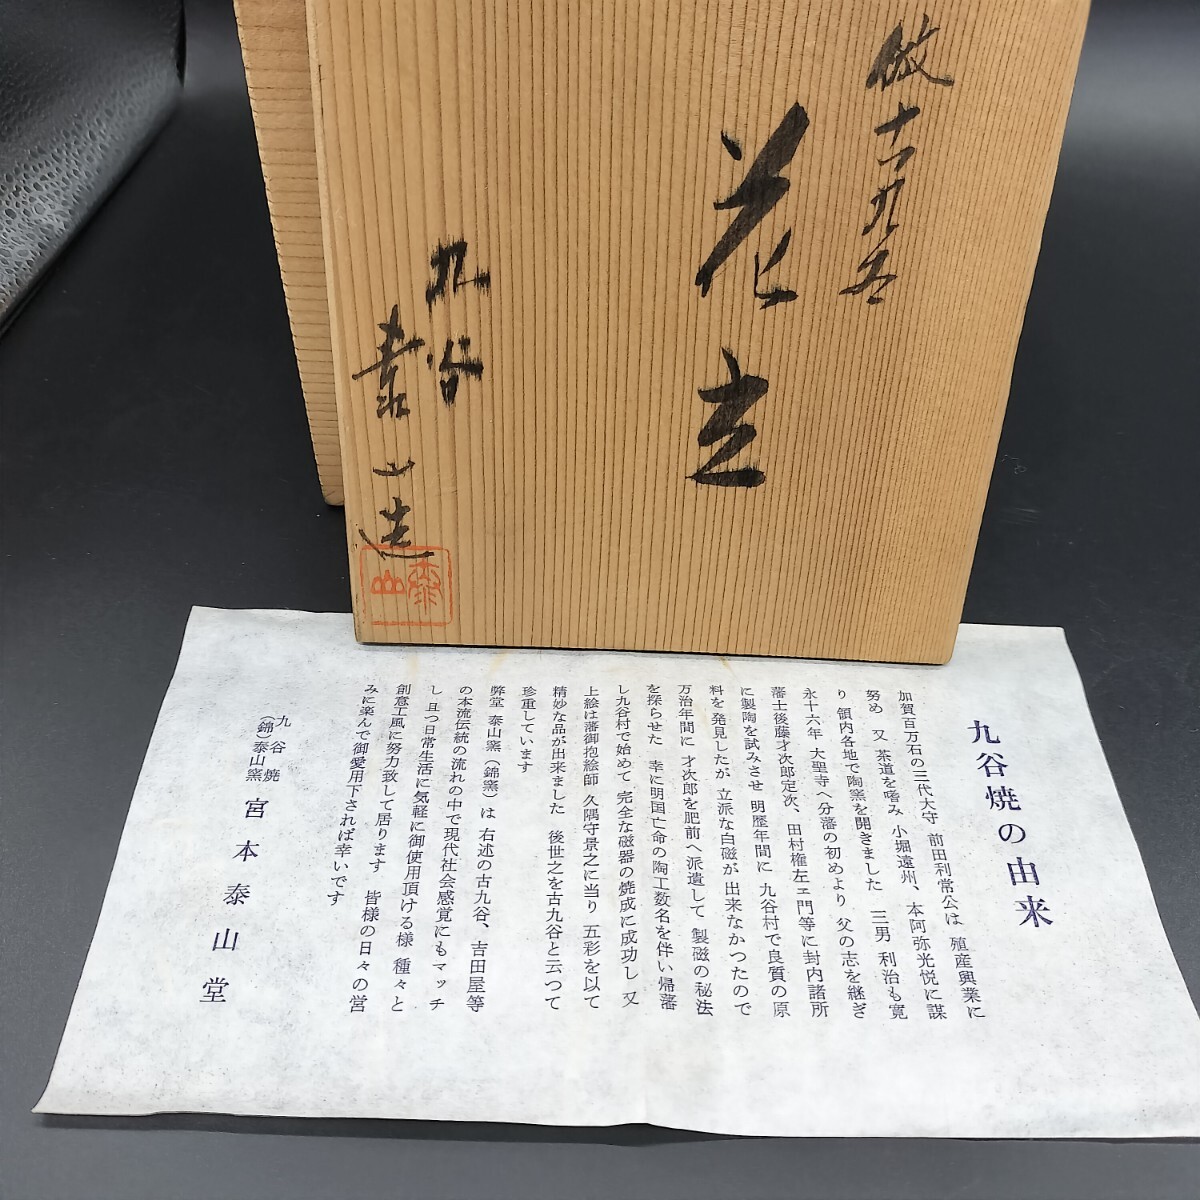 倣古九谷
花立
九谷
泰山造
九谷焼の由来
加賀百万石の三代大守 前田利常公は 殖産興業に
努め 又 茶道を嗜み 小堀遠州、本阿弥光悦に謀
り 領内各地で陶窯を開きました 三男 利治も寛
永十六年 大聖寺へ分藩の初めより 父の志を継ぎ
藩士後藤才次郎定次、田村権左ェ門等に封内諸所
に製陶を試みさせ 明歴年間に 九谷村で良質の原
料を発見したが 立派な白磁が出来なかつたので
万治年間に 才次郎を肥前へ派遣して 製磁の秘法
を探らせた 幸に明国亡命の陶工数名を伴い帰藩
し九谷村で始めて 完全な磁器の焼成に成功し 又
上絵は藩御抱絵師 久隅守景之に当り 五彩を以て
精妙な品が出来ました 後世之を古九谷と云つて
珍重しています
弊堂 泰山窯(錦窯)は 右述の古九谷、吉田屋等
の本流伝統の流れの中で現代社会感覚にもマッチ
し 且つ日常生活に気軽に御使用頂ける様 種々と
創意工風に努力致して居ります 皆様の日々の営
みに楽んで御愛用下されば幸いです
九谷焼
(錦)泰山窯 宮本泰山堂